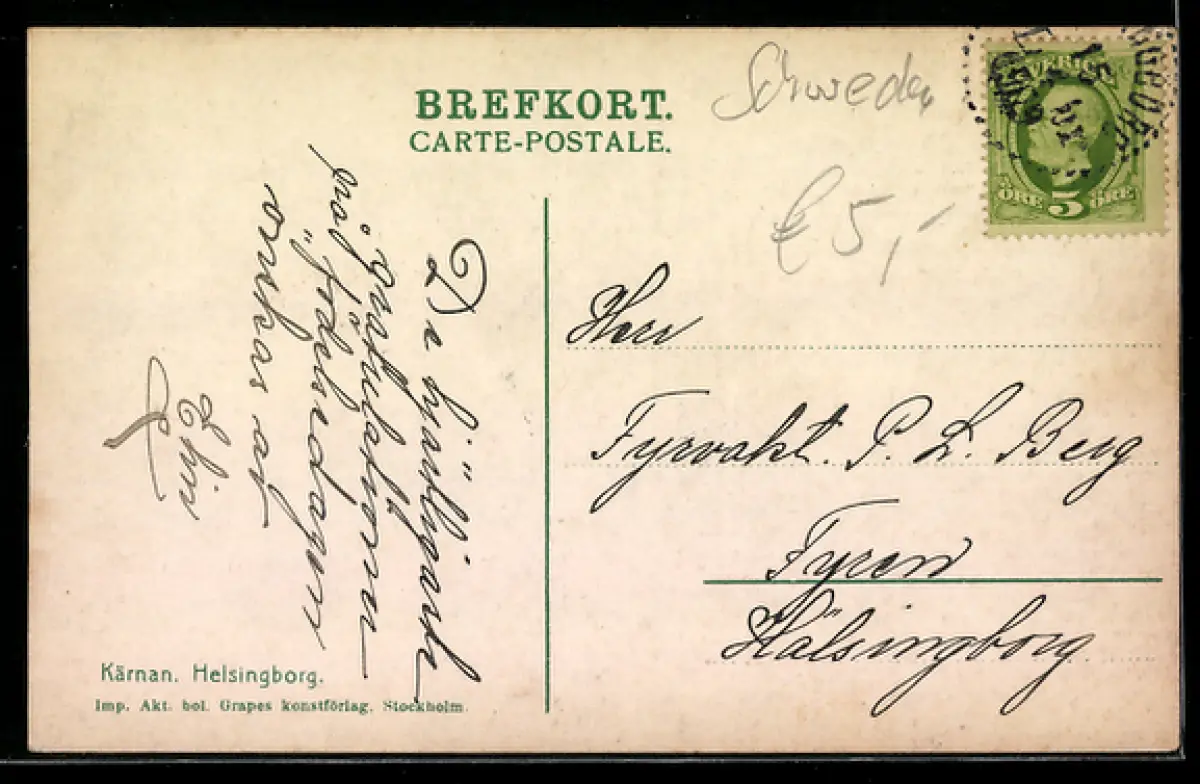 BREFKORT.
CARTE-POSTALE.
Schweden
€ 5,-
SVERIGE
ÖRE 5 ÖRE
De hjärtligaste
gratulationer
på "födelsedagen
önskas af
Elin
Herr
Fyrvakt. P. L. Berg
Fyren
Hälsingborg
Kärnan. Helsingborg.
Imp. Akt. bol. Grapes konstförlag. Stockholm.